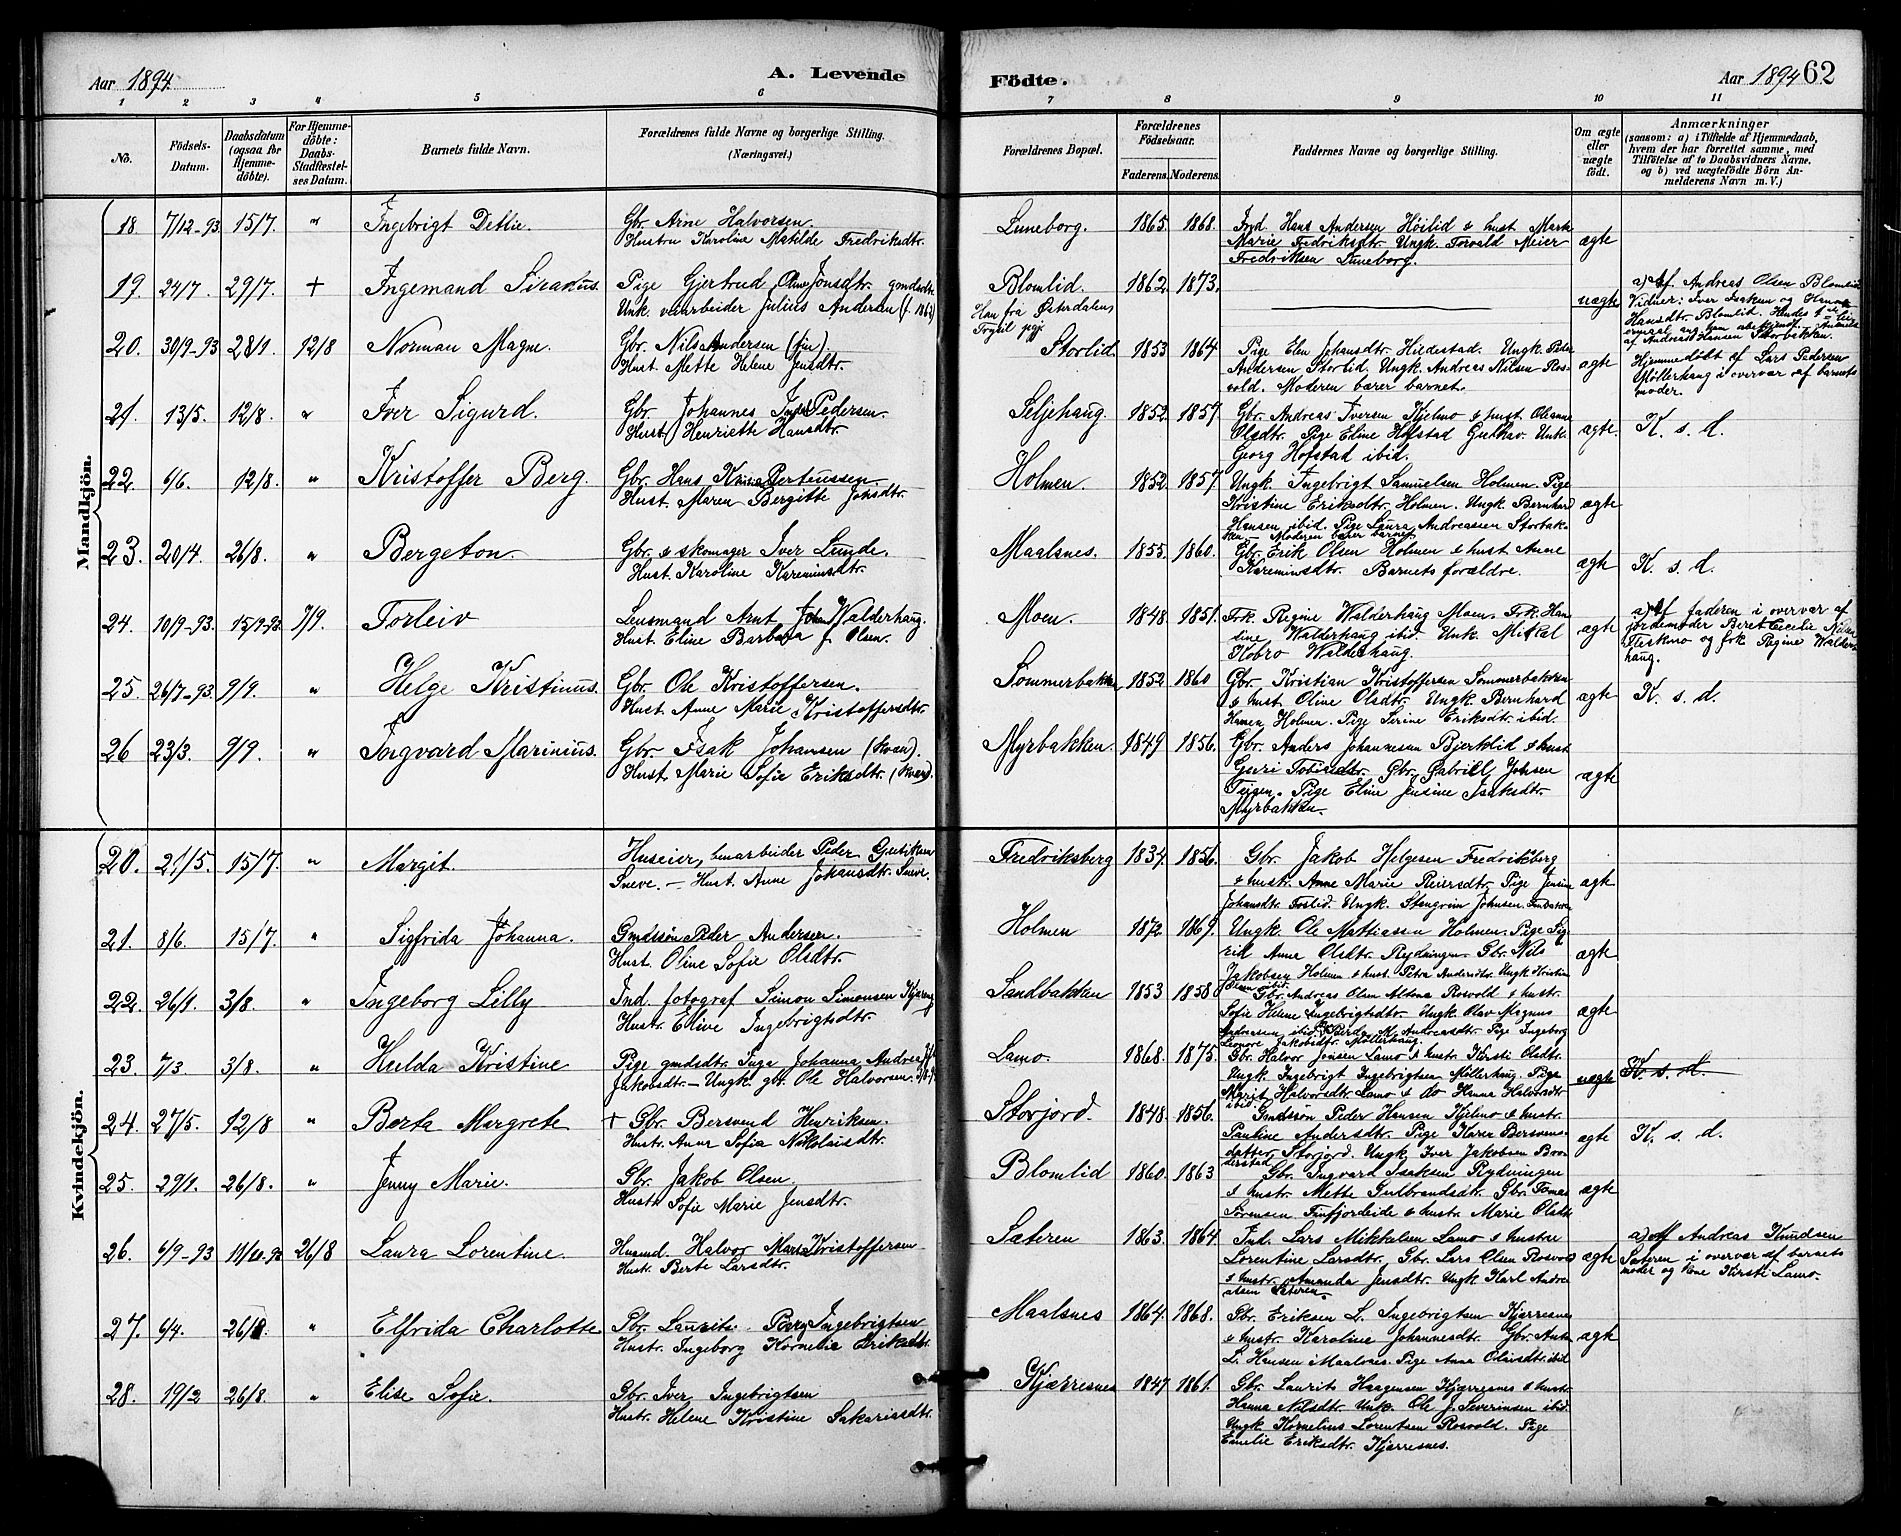 Aar 1894.
A. Levende
1 2 3 4 5 6
No.
Födsels-
Datum.
Daabsdatum
(ogsaa for
Hjemme-
döbte).
For Hjemme-
döbte:
Daabs-
Stadfæstel-
ses Datum.
Barnets fulde Navn.
Forældrenes fulde Navne og borgerlige Stilling.
(Næringsvei.)
Mandkjön.
18. 7/12-93 15/7. " Ingebrigt Detlie.
Gbr. Arne Halvorsen
Hustru Karoline Matilde Fredriksdtr.
19. 24/7. 29/7. + Ingemand Sirakus.
Pige Gjertrud Oline Jonsdtr. gmdsdtr.
Unk. veiarbeider Julius Andersen (f. 1862)
20. 30/9-93 28/1. 12/8 Norman Magne.
Gbr. Nils Andersen (fin).
Hust. Mette Helene Jensdtr.
21. 13/5. 12/8. " Iver Sigurd.
Gbr. Johannes Pedersen.
Hust. Henriette Hansdtr.
22. 6/6. 12/8. " Kristoffer Berg.
Gbr. Hans Perteussen
Hust. Maren Bergitte Johsdtr.
23. 20/4. 26/8. " Bergeton
Gbr. & skomager Iver Lunde.
Hust. Karoline Kareminsdtr.
24. 10/9-93. 15/9-93. 7/9. Torleiv
Lensmand Arnt Johan Walderhaug.
Hust. Eline Barbara f. Olsen.
25. 26/7-93. 9/9. " Helge Kristinus.
Gbr. Ole Kristoffersen.
Hust. Anne Marie Kristoffersdtr.
26 23/3. 9/9. " Ingvard Marinius.
Gbr. Isak Johansen (kvæn)
Hust. Marie Sofie Eriksdtr. (kvæn).
Kvindekjön.
20. 21/5. 15/7. " Margit.
Huseier, benarbeider Peder
Sneve. — Hust. Anne Johansdtr. Sneve.
21. 8/6. 15/7. " Sigfrida Johanna.
Gmdssön Peder Andersen.
Hust. Oline Sofie Olsdtr.
22. 26/1. 3/8. " Ingeborg Lilly
Ind. fotograf Simon Simonsen
Hustr. Eline Ingebrigtsdtr.
23. 7/3 3/8. " Hulda Kristine
Pige gmdsdtr. Inga Johanna Andrea
Jakobsdtr. — Ungk. gbr. Ole Halvorsen.
24. 27/5. 12/8 " Berta Margrete
+ Gbr. Bersvend Henriksen.
Hustr. Anne Sofia Nikolaisdtr.
25. 29/1. 26/8. " Jenny Marie.
Gbr. Jakob Olsen.
Hustr. Sofie Marie Jensdtr.
26. 6/9-93 11/10-93 26/8 Laura Lorentine.
Husmd. Halvor Kristoffersen
Hustr. Berte Larsdtr.
27. 6/4. 26/8. " Elfrida Charlotte
Gbr. Laurits Ingebrigtsen
Hustr. Ingeborg Kornelia Eriksdtr.
28. 19/2 26/8. " Elise Sofie.
Gbr. Iver Ingebrigtsen
Hustr. Helene Kristine Sakariasdtr.
Födte.
Aar 1894 62
7 8 9 10 11
Forældrenes Bopæl.
Forældrenes
Födselsaar.
Faderens. Moderens.
Faddernes Navne og borgerlige Stilling.
Om ægte
eller
uægte
født.
Anmærkninger
(saasom: a) i Tilfælde af Hjemmedaab,
hvem der har forrettet samme, med
Tilföielse af to Daabsvidners Navne.
og b) ved uægtefödte Börn An-
melderens Navn m. V.)
Luneborg. 1865. 1868.
Ind. Hans Andersen Höilid & hust.
Marie Fredriksdtr. Ungk. Torvald Meier
Fredriksen Luneborg.
ægte
Blomlid. 1862 1873.
Han fra Østerdalen
Trysil pgj.
uægte
a) Af Andreas Olsen Blomlid
Vidner: Iver Isaksen og Hanna
Hansdtr. Blomlid.
af Andreas Hansen Storbakken.
Storlid 1853 1864.
Pige Elen Johansdtr. Hildestad. Ungk. Peder
Andersen Storlid. Ungk. Andreas Nilsen Ros-
vold. Moderen bærer barnet.
ægte
Hjemmedöbt af Lars Pedersen
Möllerhaug i overvær af barnets
moder.
Seljehaug. 1852. 1857.
Gbr. Andreas Iversen Kjelmo & hust. Oleanna
Olsdtr. Pige Eline Hofstad Unk.
Georg Hofstad ibid.
ægte.
K. s. d.
Holmen. 1852. 1857.
Ungk. Ingebrigt Samuelsen Holmen. Pige
Kristine Eriksdtr. Holmen. Ungk. Bernhard
Hansen ibid. Pige Laura Andreassen Storbak-
ken. — Moderen bærer barnet.
ægte
Maalsnes. 1855. 1860.
Gbr. Erik Olsen Holmen & hust. Anne
Kareminsdtr. Barnets forældre.
ægte
K. s. d.
Moen. 1848. 1851.
Frk. Regine Walderhaug Moen. Frk. Han-
line Walderhaug ibid. Unk. Mikal
Kobro Walderhaug.
ægte
a) Af faderen i overvær af
jordemoder Beret Cecilie Nilsen
og frk. Regine Walder-
haug.
Sommerbakken 1852 1860
Gbr. Kristian Kristoffersen Sommerbakken
& hust. Oline Olsdtr. Ungk. Bernhard
Hansen Holmen. Pige Serine Eriksdtr. ibid.
ægte
K. s. d.
Myrbakken. 1849 1856.
Gbr. Anders Johannesen Bjerklid & hust.
Guri Tobiasdtr. Gbr. Gabriel Johsen
Teigen. Pige Eline Jensine Isaksdtr.
Myrbakken.
ægte
Fredriksberg 1834. 1856.
Gbr. Jakob Helgesen Fredriksberg
& hustr. Anne Marie Reiersdtr. Pige Jensine
Johansdtr. Foslid. Ungk. Stengrim Johnsen.
ægte
Holmen 1872. 1869.
Ungk. Ole Mattiassen Holmen. Pige Sig-
rid Anne Olsdtr. Rydningen. Gbr. Nils
Jakobsen Holmen & hust. Petra Andersdtr. Ungk. Kristian
Olsen ibid.
ægte
Sandbakken 1853 1858
Gbr. Andreas Olsen Altona Rosvold & hustr.
Sofie Helene Ingebrigtsdtr. Ungk. Olav Magnus
Andreassen ibid. Berda M. Andreasdtr. Pige Ingeborg
Leonore Jakobsdtr. Möllerhaug.
ægte
Lamo. 1868. 1875.
Gbr. Halvor Jensen Lamo & hustr. Kirsti Olsdtr.
Ungk. Ingebrigt Ingebrigtsen Möllerhaug. Pige
Marit Halvorsdtr. Lamo & do Hanna Halvorsdtr.
ibid.
uægte
K. s. d.
Storjord. 1848. 1856.
Gmdssön Peder Hansen Kjelmo & hustr.
Pauline Andersdtr. Pige Karen Bersvens-
datter Storjord. Ungk. Iver Jakobsen Bon-
derstad.
ægte
K. s. d.
Blomlid 1860. 1863
Gbr. Ingvard Isaksen Rydningen
& hustr. Mette Gulbrandsdtr. Gbr. Tomas
Sörensen Finfjordeide & hustr. Marie Olsdtr.
ægte
Sæteren 1863. 1864.
Ind. Lars Mikkelsen Lamo & hustru
Lorentine Larsdtr. Gbr. Lars Olsen Rosvold
& hustr. Amanda Jensdtr. Ungk. Karl Andre-
assen Sæteren.
ægte
a) Af Andreas Knudsen
Sæteren i overvær af barnets
moder og kone Kirsti Lamo.
Maalsnes 1864. 1868.
Gbr. Eriksen L. Ingebrigtsen Kjærresnes
& hustr. Karoline Johannesdtr. Gbr. Anton
L. Hansen i Maalsnes. Pige Anna Olaisdtr. ibid
ægte
Kjærresnes 1847. 1861.
Gbr. Laurits Haagensen Kjærresnes & hustr.
Hanna Nilsdtr. Unk. Ole J. Severinsen ibid.
Ungk. Kornelius Lorentsen Rosvold. Pige
Emelie Eriksdtr. Kjærresnes.